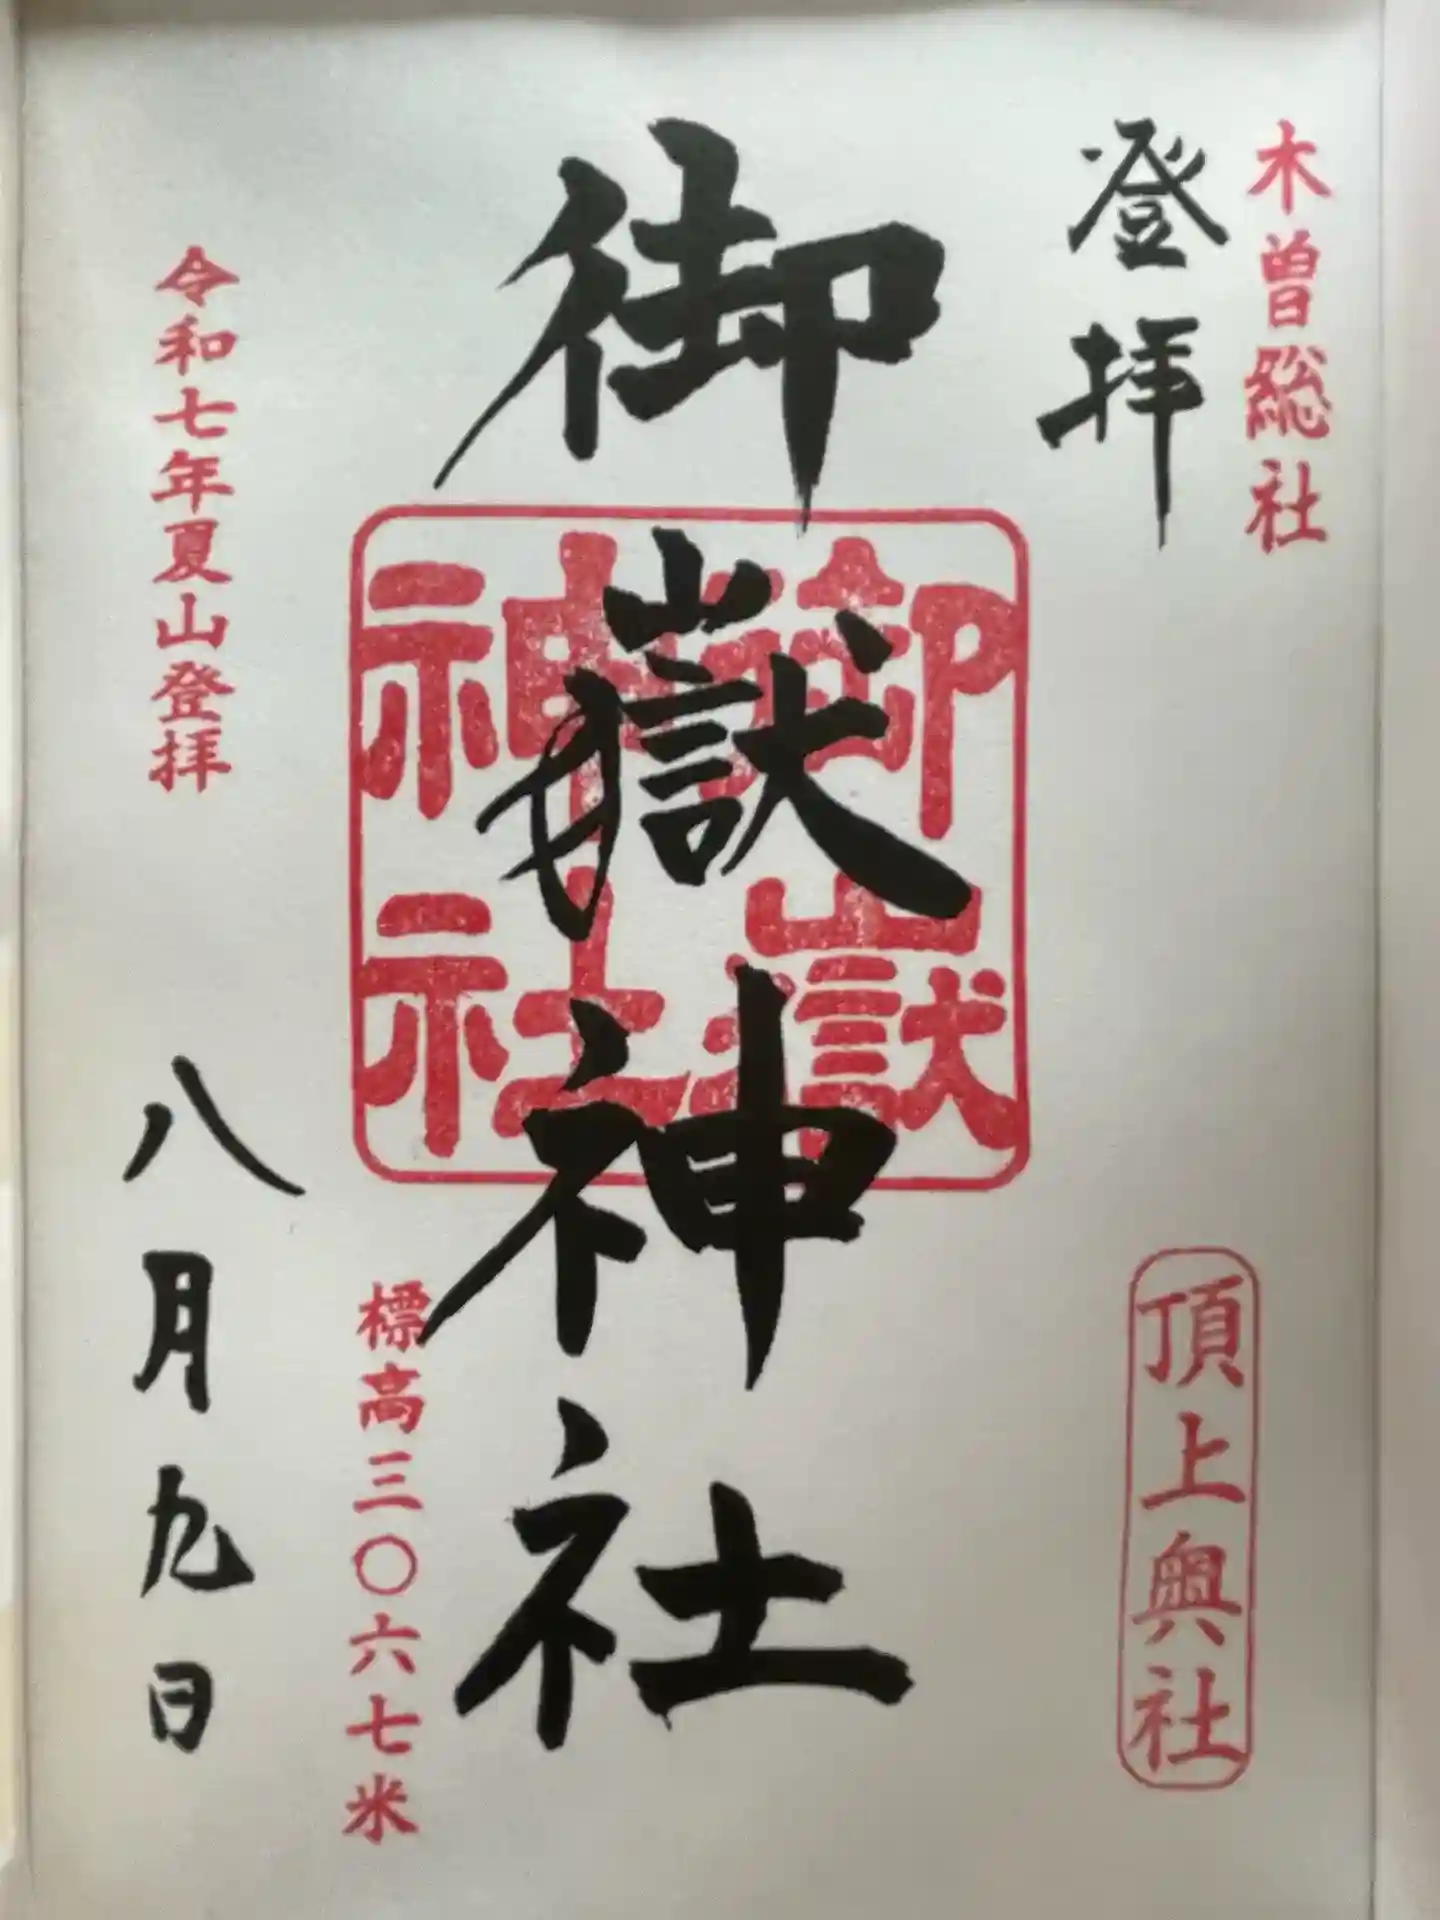 木曽総社
登拝
頂上奥社
御嶽神社
御嶽
神社
標高三〇六七米
令和七年夏山登拝
八月九日